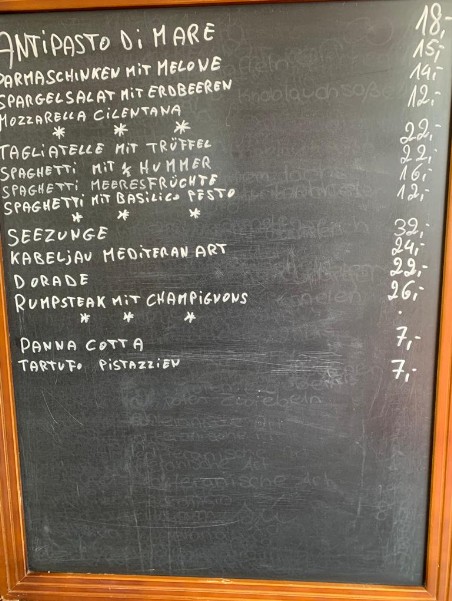 ANTIPASTO DI MARE 18,-
PARMASCHINKEN MIT MELONE 15,-
SPARGELSALAT MIT ERDBEEREN 14,-
MOZZARELLA CILENTANA 12,-
* * *
TAGLIATELLE MIT TRÜFFEL 22,-
SPAGHETTI MIT ½ HUMMER 22,-
SPAGHETTI MEERESFRÜCHTE 16,-
SPAGHETTI MIT BASILICO PESTO 12,-
* * *
SEEZUNGE 32,-
KABELJAU MEDITERAN ART 24,-
DORADE 22,-
RUMPSTEAK MIT CHAMPIGNONS 26,-
* * *
PANNA COTTA 7,-
TARTUFO PISTAZZIEN 7,-